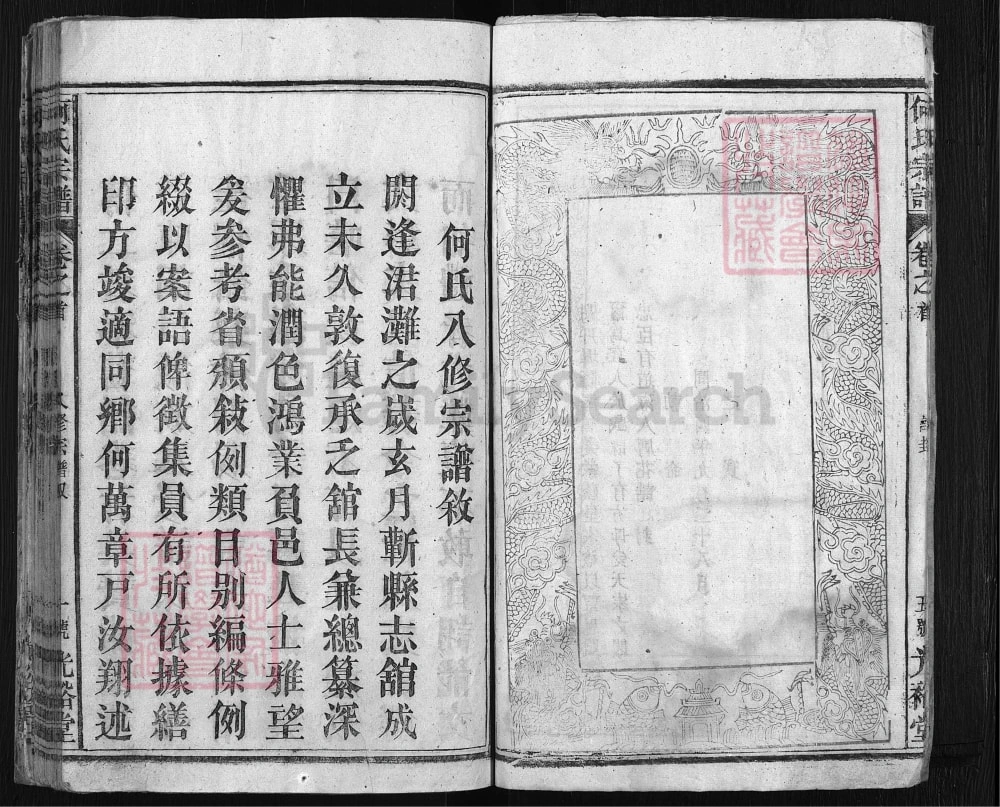 何氏宗譜
卷之首
五號
光裕堂
何氏八修宗譜敘
閼逢涒灘之歲玄月蘄縣志舘成
立未久敦復承乏舘長兼總纂深
懼弗能潤色鴻業負邑人士雅望
爰參考省頒敍例類目別編條例
綴以案語俾徵集員有所依據繕
印方竣適同鄉何萬章戸汝翔述
何氏宗譜
卷之首
八修宗譜敘
一號
光裕堂
FamilySearch